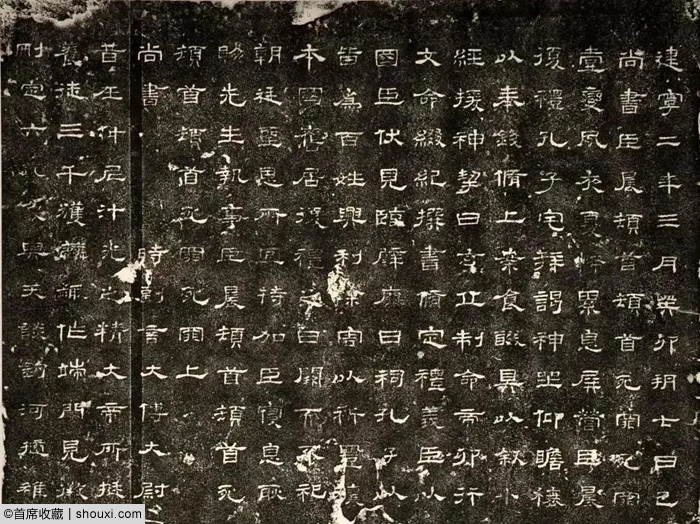 建寧二年三月癸卯朔七日己
尚書臣晨頓首頓首死罪死罪
壹變夙夜憂怖累息屏營臣晨
復禮孔子宅拜謁神坐仰瞻榱
以奉錢脩上案食醊具以敘小
經援神挈曰玄丘制命帝卯行
文命綴紀撰書脩定禮義臣以
國臣伏見臨辟雍日祠孔子以
皆為百姓興利除害以祈豐穰
本國舊居復禮之日闕而不祀
朝廷聖恩所宜特加臣寢息耿
賜先生執事臣晨頓首頓首死
頓首頓首死罪死罪上
尚書 時副言大傅大尉
昔在仲尼汁光之精大帝所挺
養徒三千獲麟趣作端門見徵
刪定六藝象與天談鉤河擿雒
©首席收藏 | shouxi.com